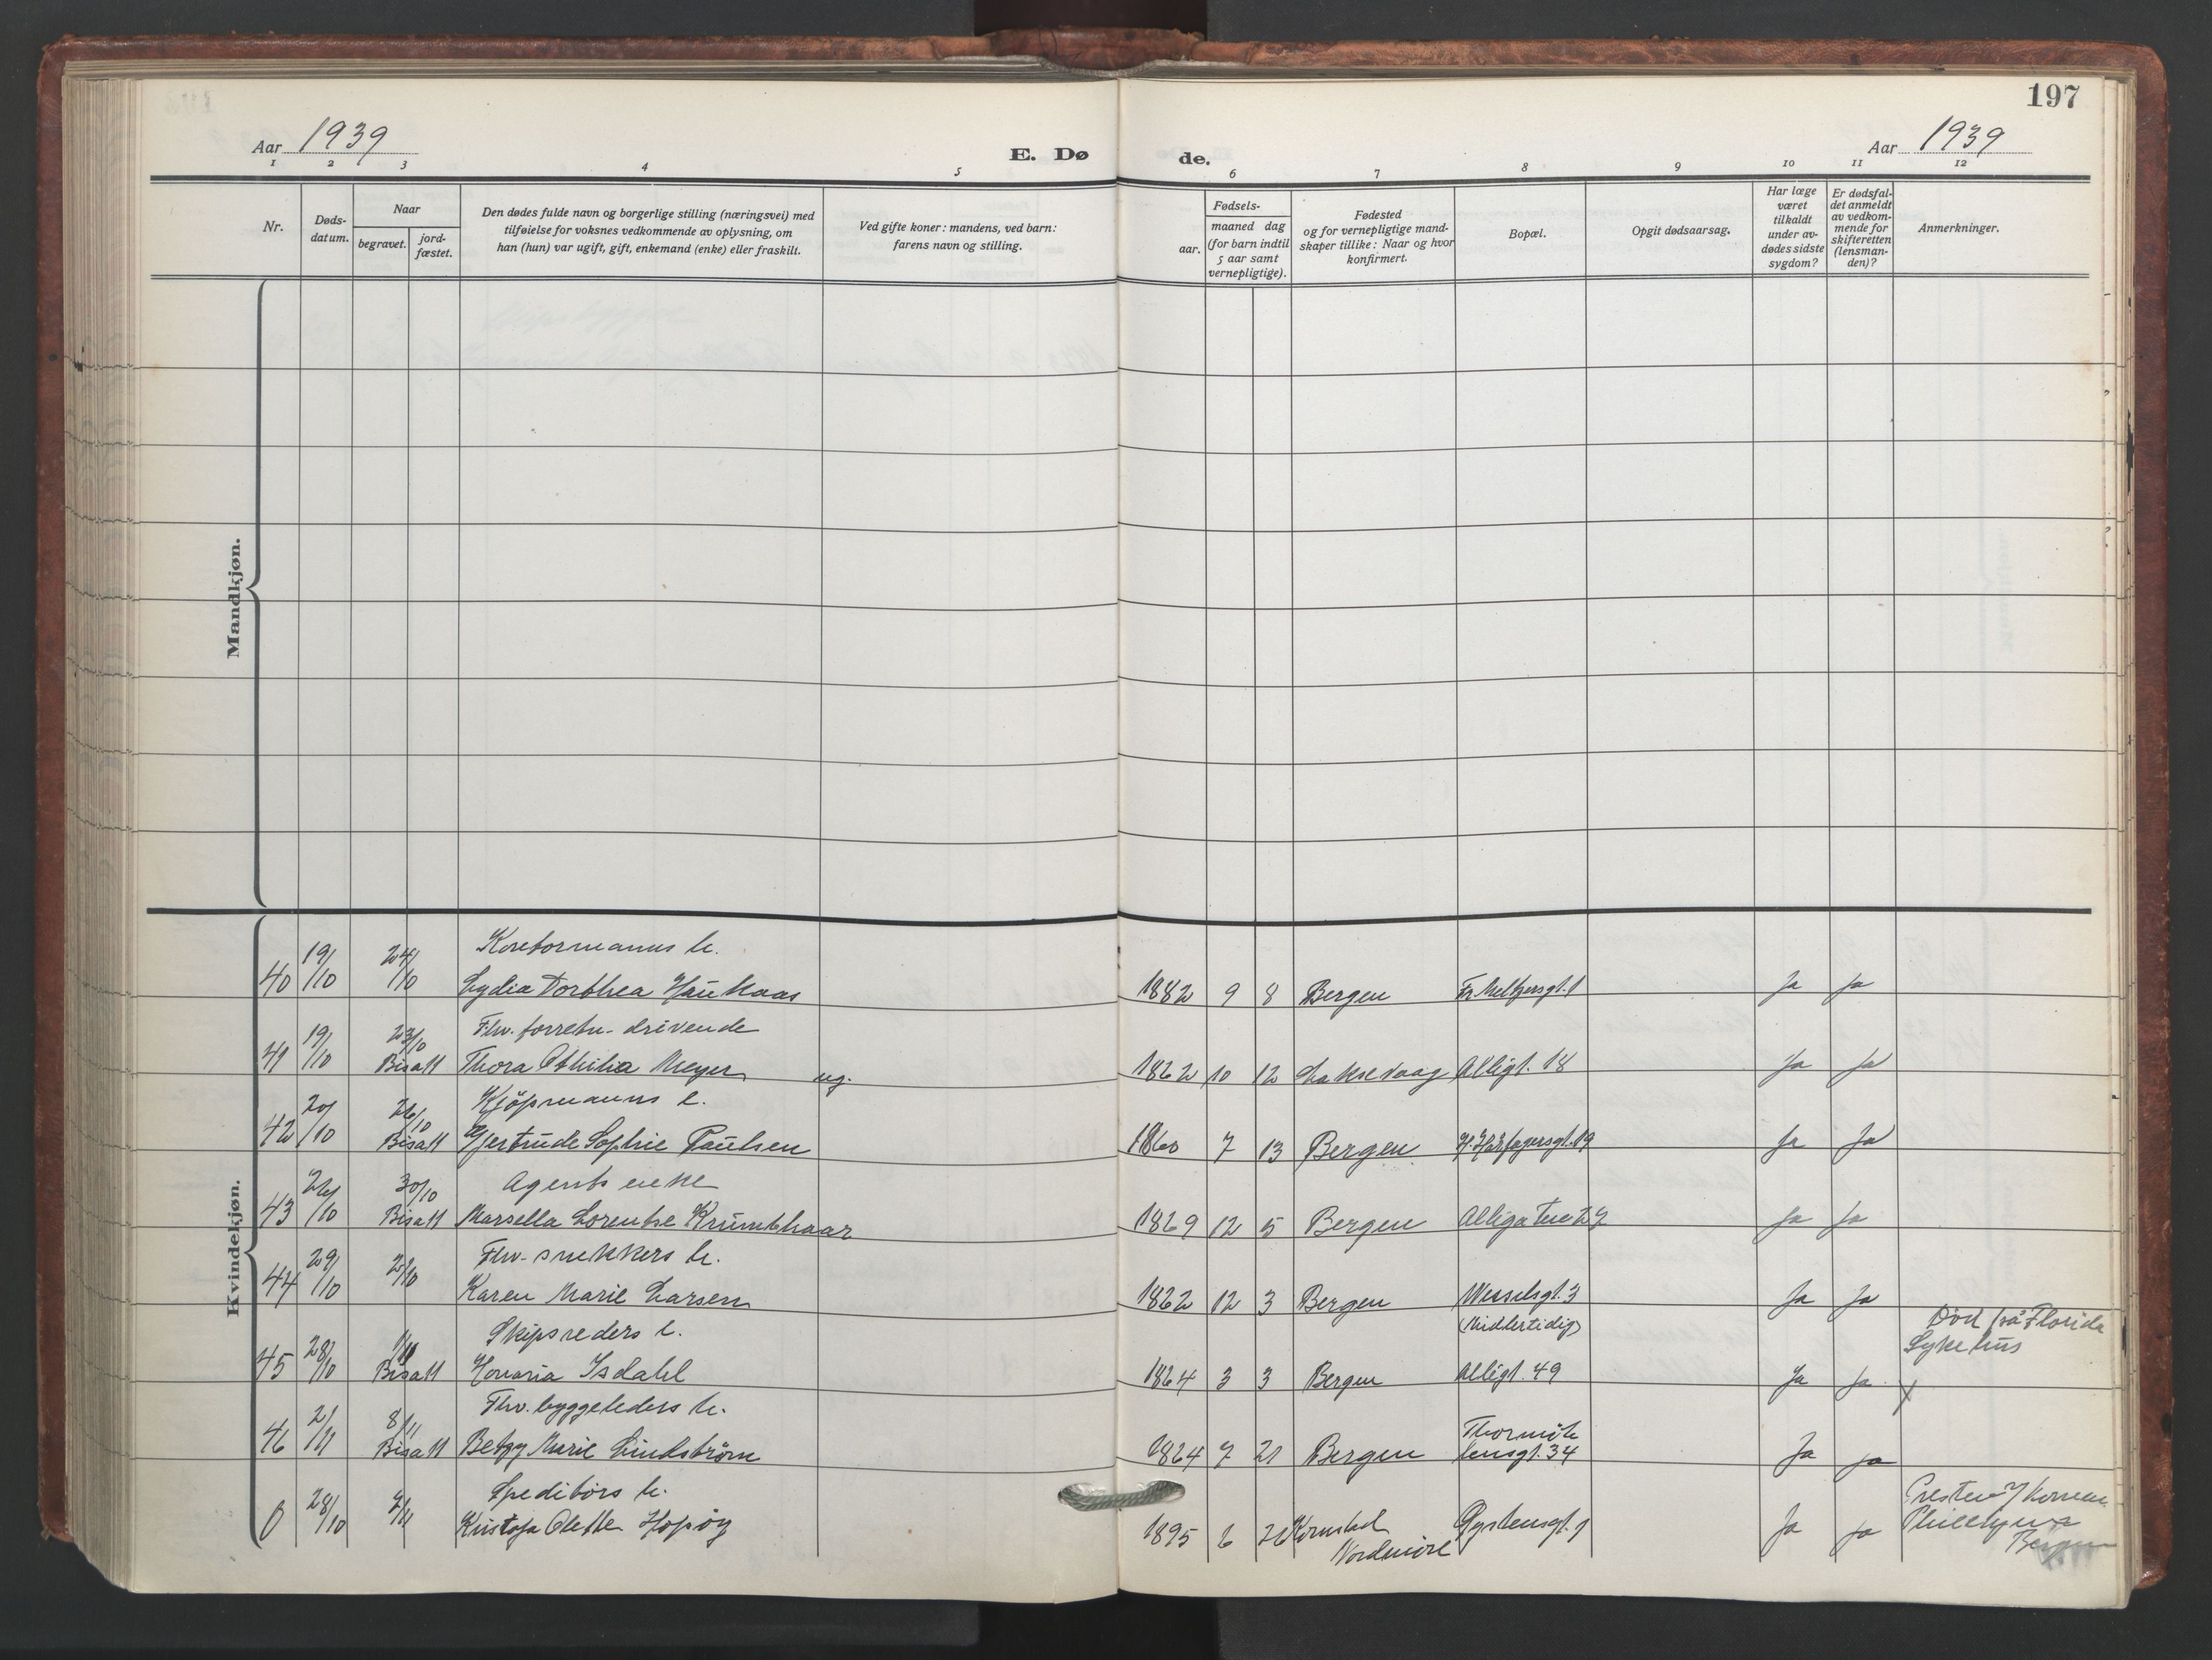 197
Aar 1939
E. Dø
de.
Aar 1939
1 2 3 4 5 6 7 8 9 10 11 12
Nr.
Døds-
datum.
Naar
begravet.
jord-
fæstet.
Den dødes fulde navn og borgerlige stilling (næringsvei) med
tilføielse for voksnes vedkommende av oplysning, om
han (hun) var ugift, gift, enkemand (enke) eller fraskilt.
Ved gifte koner: mandens, ved barn:
farens navn og stilling.
Fødsels-
aar.
maaned dag
(for barn indtil
5 aar samt
vernepligtige).
Fødested
og for vernepligtige mand-
skaper tillike: Naar og hvor
konfirmert.
Bopæl.
Opgit dødsaarsag.
Har læge
været
tilkaldt
under av-
dødes sidste
sygdom?
Er dødsfal-
det anmeldt
av vedkom-
mende for
skifteretten
(lensman-
den)?
Anmerkninger.
Mandkjøn.
Kvindekjøn.
40 19/10 24/10 Lydia Dorthea Haukaas 1882 9 8 Bergen Ja Ja
Fhv. forretn. drivende
41 19/10 23/10 Bisatt Thora Othilia Meyer ug. 1862 10 12 Laksevaag Allégt. 18 Ja Ja
Kjöpmanns e.
42 20/10 26/10 Bisatt Gjertrude Sophie Paulsen 1860 7 13 Bergen H. Hårfagersgt. 19 Ja Ja
Agents enke
43 26/10 30/10 Bisatt Marsella Lorentse Krumbhaar 1869 12 5 Bergen Ja Ja
Fhv. snekkers h.
44 29/10 Karen Marie Larsen 1862 12 3 Bergen Wesselsgt. 3 Ja Ja
Skipsreders e. (Midlertidig) Död på Florida
Sykehus
45 28/10 1/11 Bisatt Honoria Isdahl 1864 3 3 Bergen Allégt. 49 Ja Ja X
Fhv. byggeleders h.
46 2/11 8/11 Bisatt Betzy Marie Lindström 1864 7 21 Bergen Thormöh
lensgt. 34 Ja Ja
Speditörs h.
0 28/10 2/11 Kristofa Olette Hopöy 1895 6 26 Kornstad
Nordmöre Ja Ja
Bergen